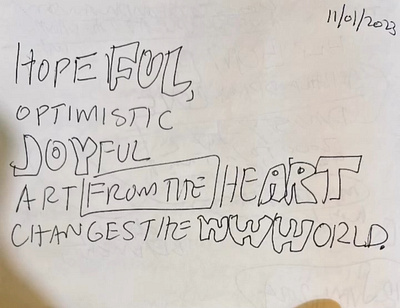 11/01/2023
HOPEFUL,
OPTIMISTIC
JOYFUL
ART FROM THE HEART
CHANGES THE WWWORLD.